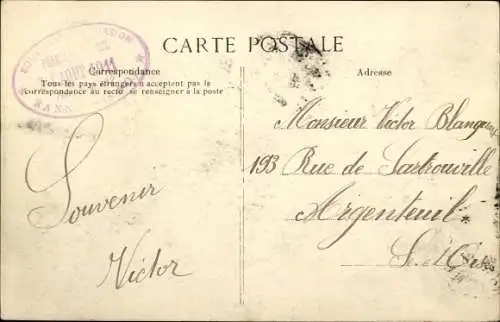 CARTE POSTALE
Correspondance
Tous les pays étrangers n'acceptent pas la
correspondance au recto se renseigner à la poste
Adresse
Souvenir
Victor
Monsieur Victor
193 Rue de Sartrouville
Argenteuil
S. et Oise
1911